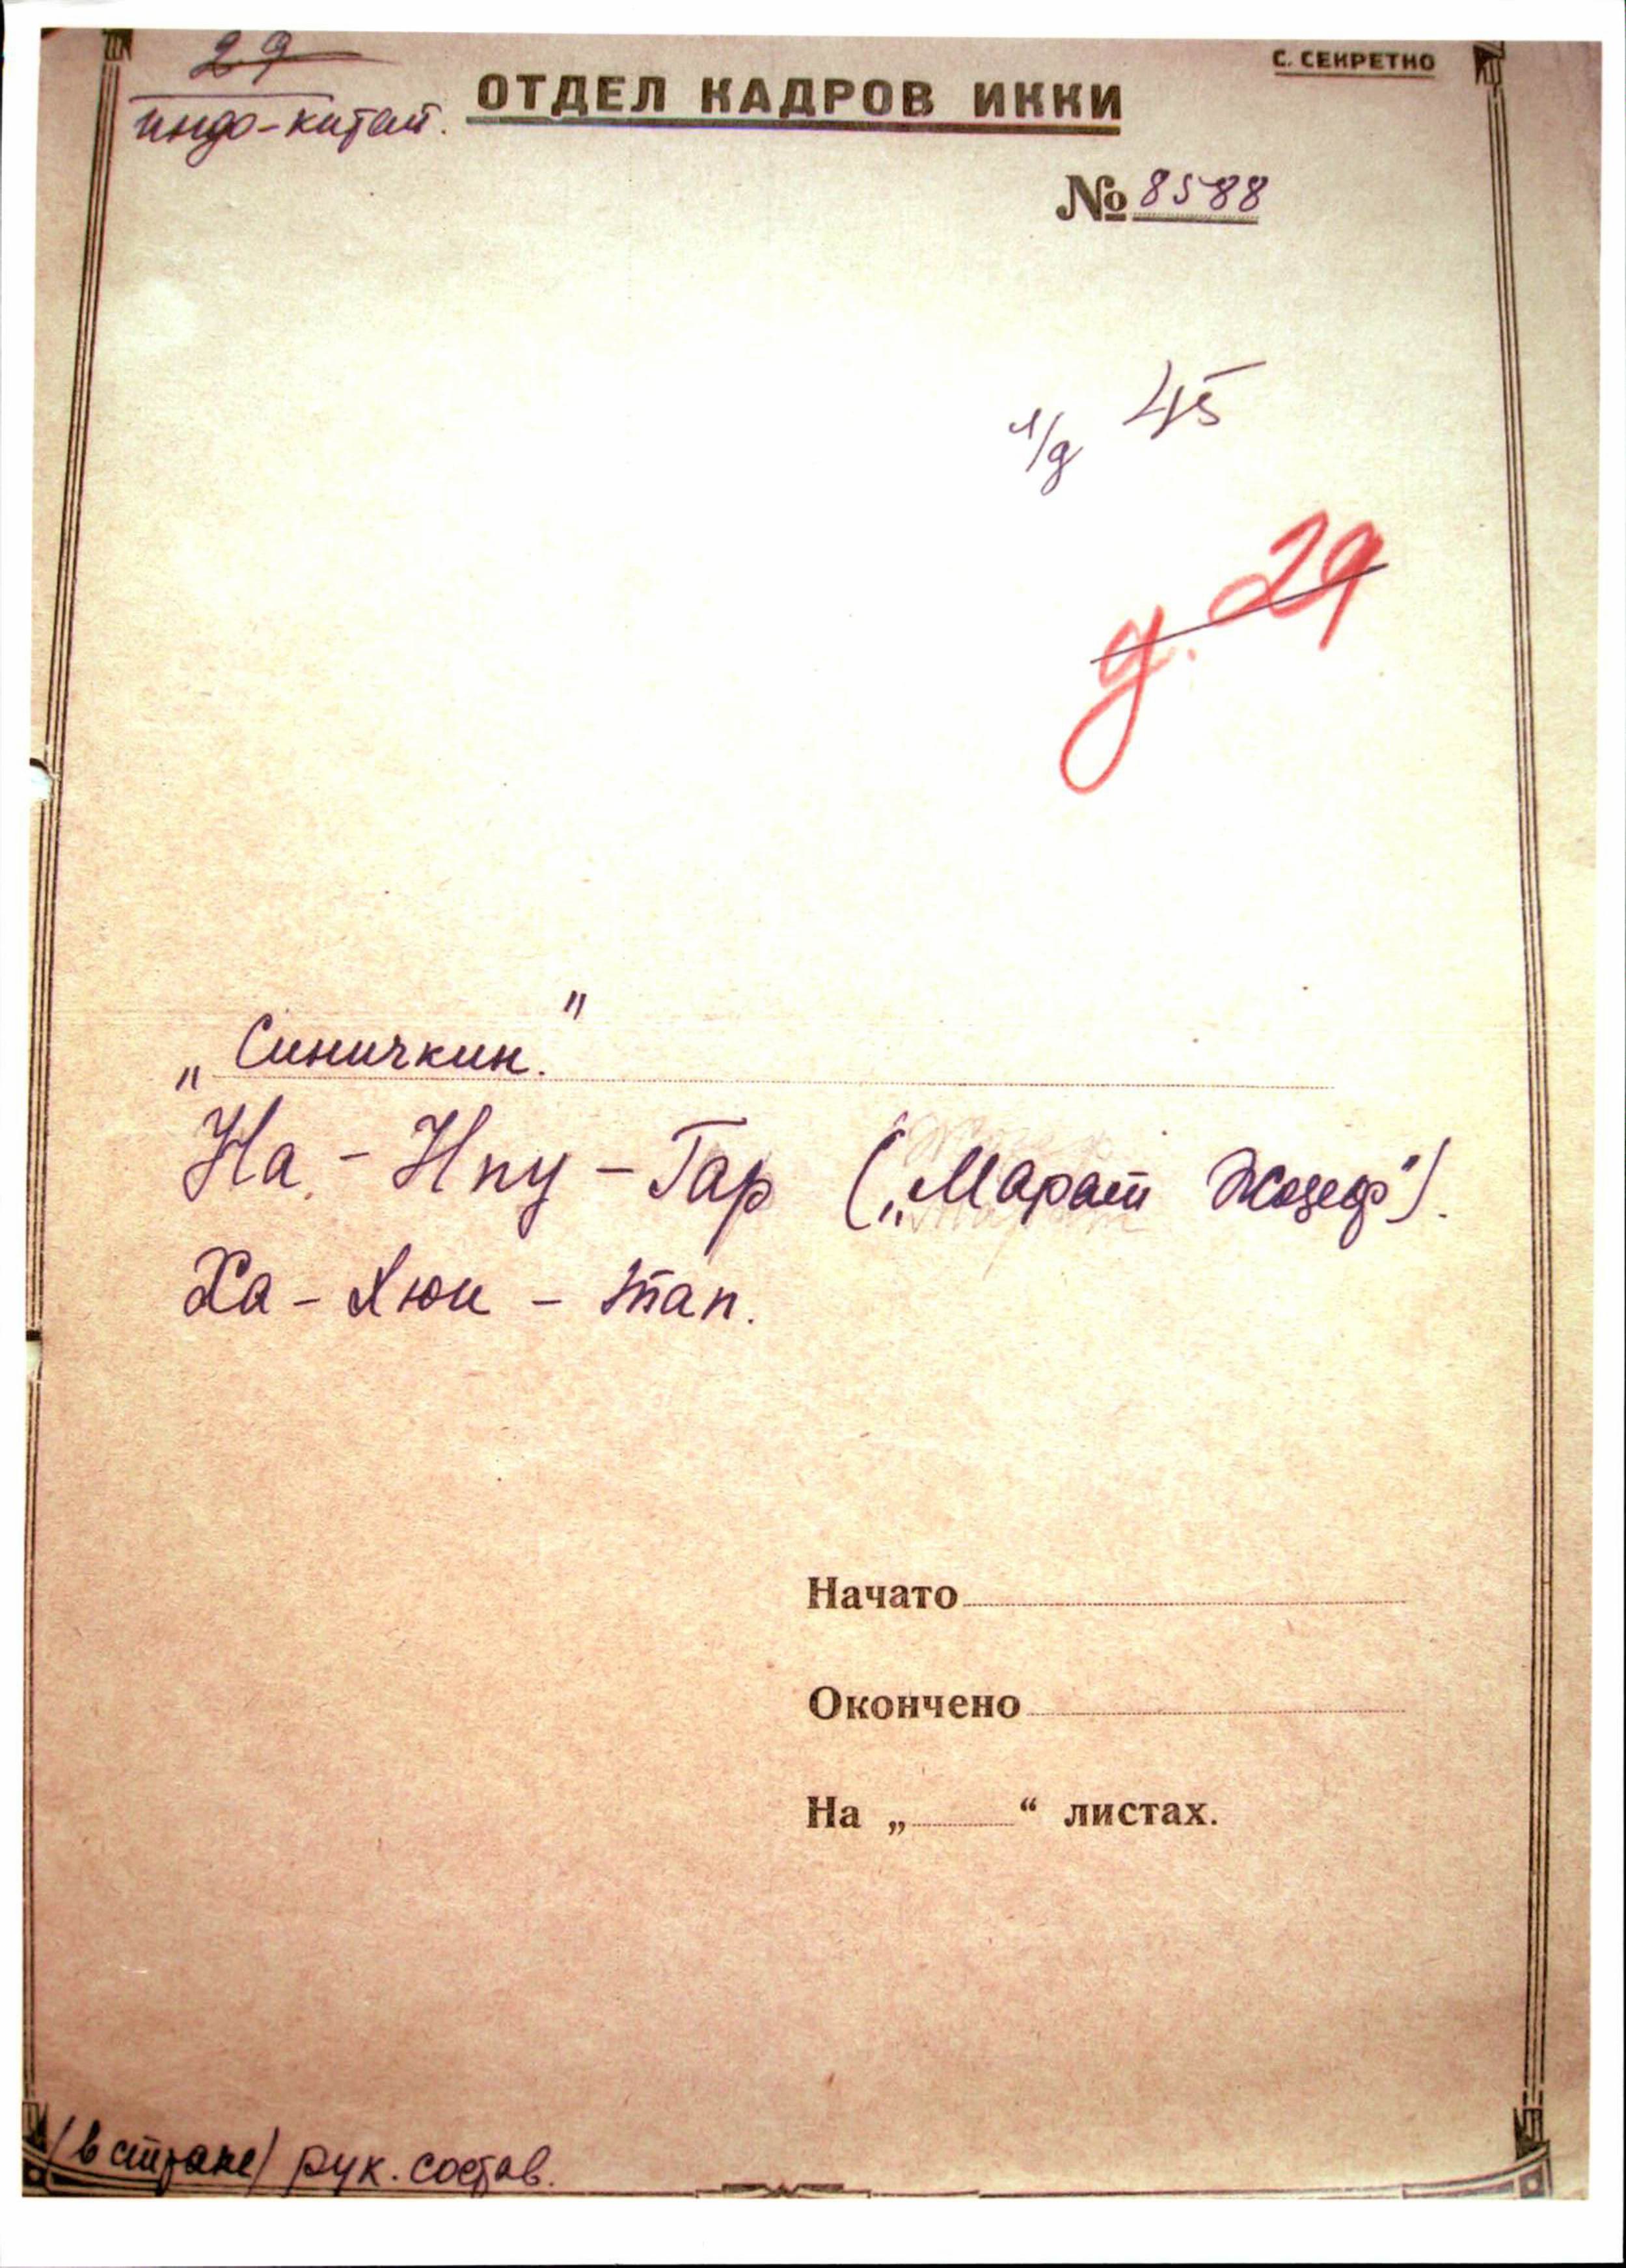 29
С. СЕКРЕТНО
индо-китай.
ОТДЕЛ КАДРОВ ИККИ
№ 8588
л/д 45
д. 29
„Синичкин."
На-Нпу-Гар („Марат Жозеф").
Ха-Хюи-тап.
Начато
Окончено
На „ “ листах.
/в стране/ рук. состав.